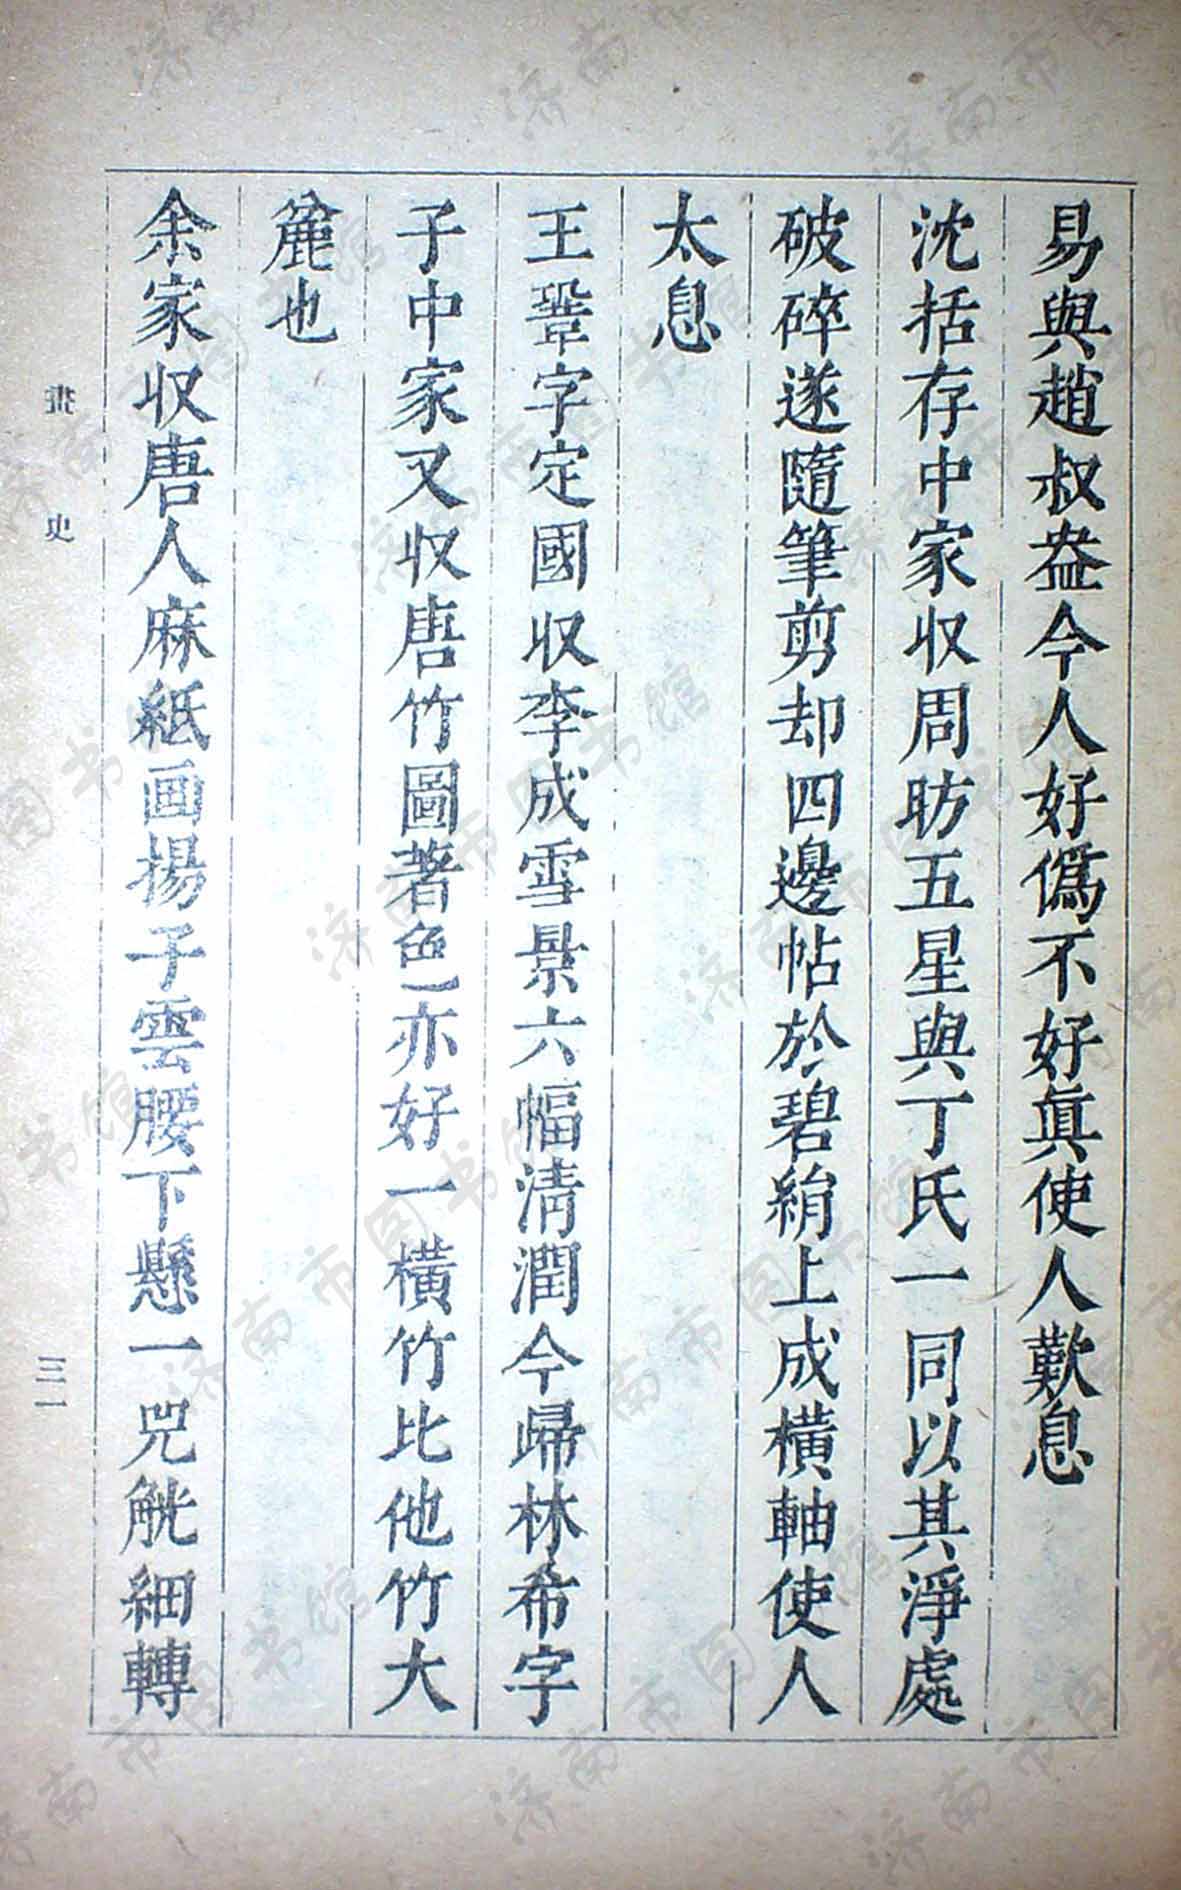 易與趙叔盎今人好僞不好眞使人歎息
沈括存中家收周昉五星與丁氏一同以其淨處
破碎遂隨筆剪却四邊帖於碧絹上成橫軸使人
太息
王鞏字定國收李成雪景六幅淸潤今歸林希字
子中家又收唐竹圖著色亦好一橫竹比他竹大
麄也
余家收唐人麻紙画揚子雲腰下懸一兕觥細轉
畫史
三一
济南市图书馆